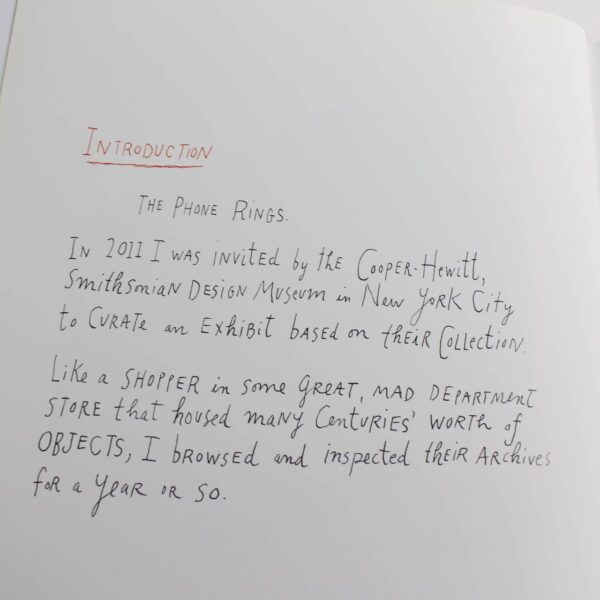 INTRODUCTION
THE PHONE RINGS.
IN 2011 I WAS INVITED by the COOPER-HEWITT,
SMITHSONIAN DESIGN MUSEUM in NEW YORK CITY
to CURATE an EXHIBIT BASED on THEIR COLLECTION.
Like a SHOPPER in some GREAT, MAD DEPARTMENT
STORE that housed maNy CENTURIES' WORTH of
OBJECTS, I BROWSED and inspected THEIR ARCHIVES
for a YEAR OR SO.